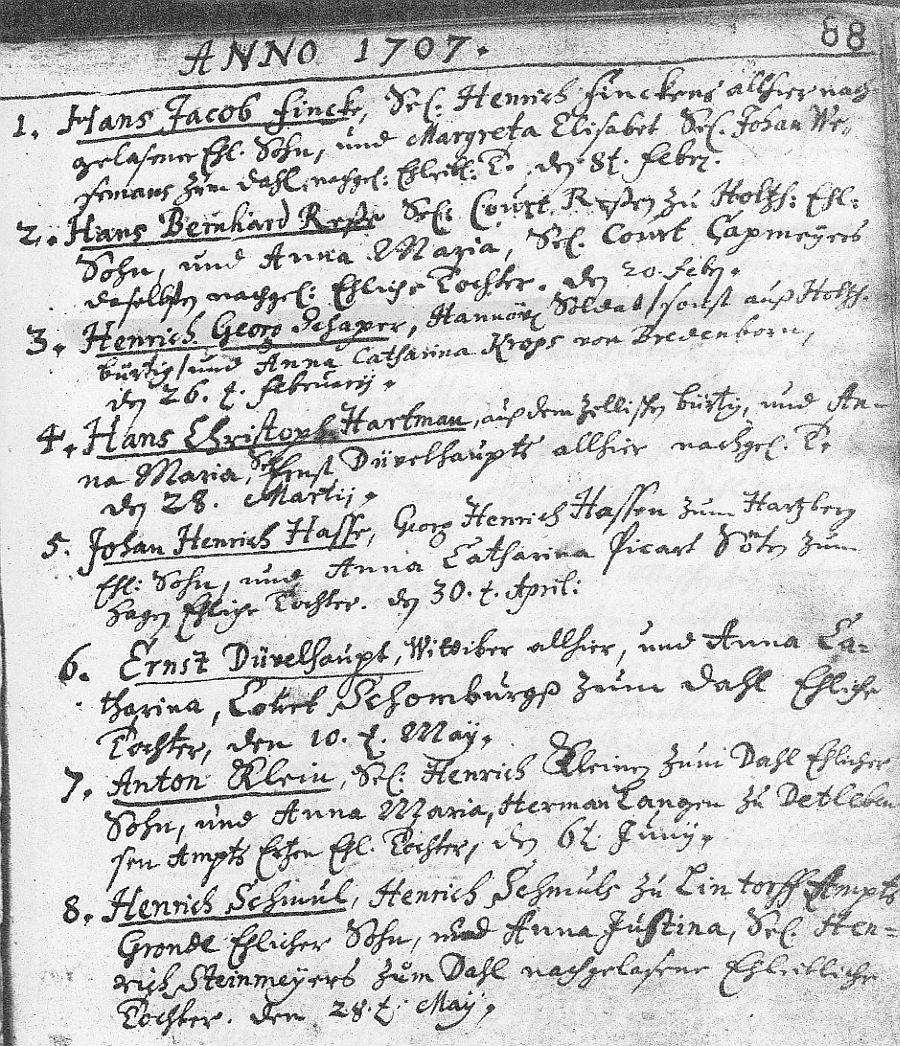 88
ANNO 1707.
1. Hans Jacob Fincke, Sel. Henrich Finckens allhier nach
gelaßener Ehl. Sohn, und Margreta Elisabet Sel. Johan We-
semans zum Dahl, nachgel: Ehleibl: T. den 8t. Febr.
2. Hans Bernhard Reße Sel: Court Reßen zu Holtzh: Ehl:
Sohn, und Anna Maria, Sel. Court Capmeÿers
daselbsten nachgel: Ehliche Tochter. den 20. Febr.
3. Henrich Georg Schaper, Hannöv. Soldat / sonst auß Holtzh.
bürtig / und Anna Catharina Krops von Bredenborn,
den 26. t. Februarij.
4. Hans Christoph Hartman, auß dem Zellischen bürtig, und An-
na Maria, Sel. Ernst Düvelhaupts allhier nachgel. T.
den 28. Martij.
5. Johan Henrich Hasse, Georg Henrich Hassen zum Hartzberg
Ehl: Sohn, und Anna Catharina Picart Söten zum
Hagen Ehliche Tochter. den 30. t. April:
6. Ernst Düvelhaupt, Wittiber allhier, und Anna Ca-
tharina, Court Schomburgß zum Dahl Ehliche
Tochter, den 10. t. Maÿ.
7. Anton Klein, Sel: Henrich Kleinen zum Dahl Ehlicher
Sohn, und Anna Maria, Herman Langen zu Detleben
sen Ampts Ertzen Ehl. Tochter, den 6t. Junij.
8. Henrich Schmul, Henrich Schmuls zu Lintorff Ampts
Gronde Ehlicher Sohn, und Anna Justina, Sel. Hen-
rich Steinmeÿers zum Dahl nachgelaßene Ehleibliche
Tochter. den 28. t. Maÿ.